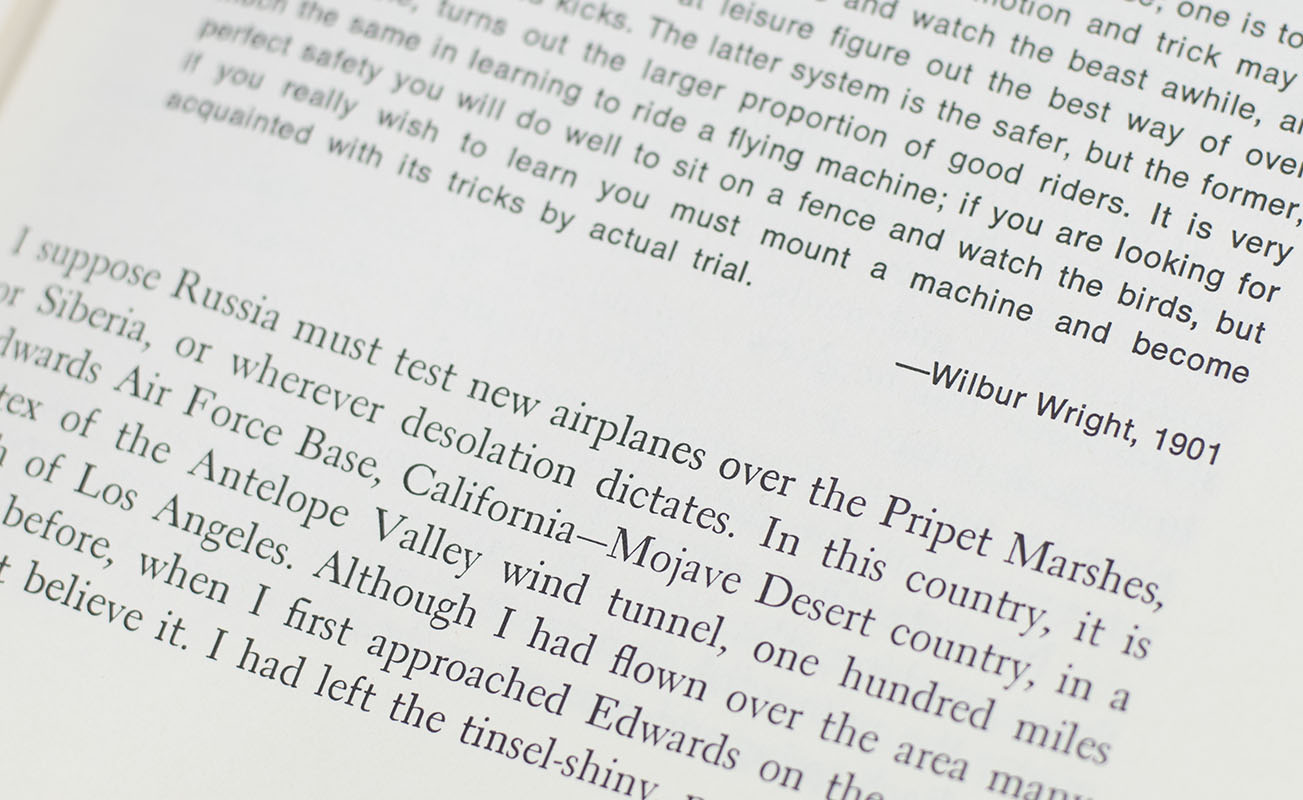 one is to
and watch the beast awhile, and
at leisure figure out the best way of over
kicks. The latter system is the safer, but the former,
turns out the larger proportion of good riders. It is very
much the same in learning to ride a flying machine; if you are looking for
perfect safety you will do well to sit on a fence and watch the birds, but
if you really wish to learn you must mount a machine and become
acquainted with its tricks by actual trial.
—Wilbur Wright, 1901
I suppose Russia must test new airplanes over the Pripet Marshes,
or Siberia, or wherever desolation dictates. In this country, it is
dwards Air Force Base, California—Mojave Desert country, in a
tex of the Antelope Valley wind tunnel, one hundred miles
of Los Angeles. Although I had flown over the area many
before, when I first approached Edwards on the
t believe it. I had left the tinsel-shiny